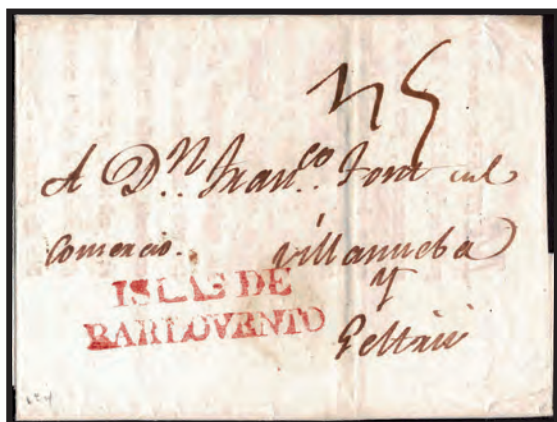 A D.ⁿ Fran.ᶜᵒ Font del
Comercio. Villanueba
y
Geltrú
ISLAS DE
BARLOVENTO